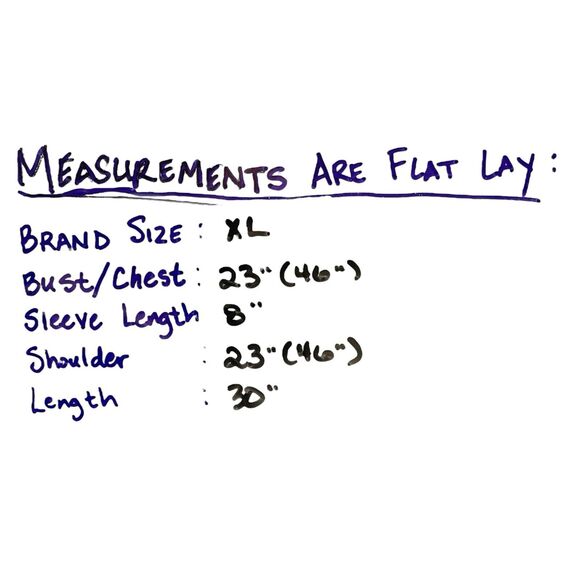 MEASUREMENTS ARE FLAT LAY:
BRAND SIZE: XL
Bust/Chest: 23" (46")
Sleeve Length 8"
Shoulder : 23" (46")
Length : 30"